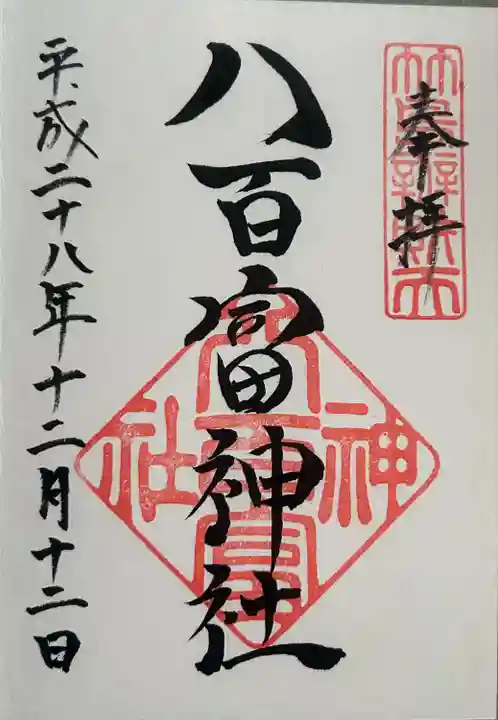 奉拝
竹島辨財天
八百富神社
八百富
神社
平成二十八年十二月十二日